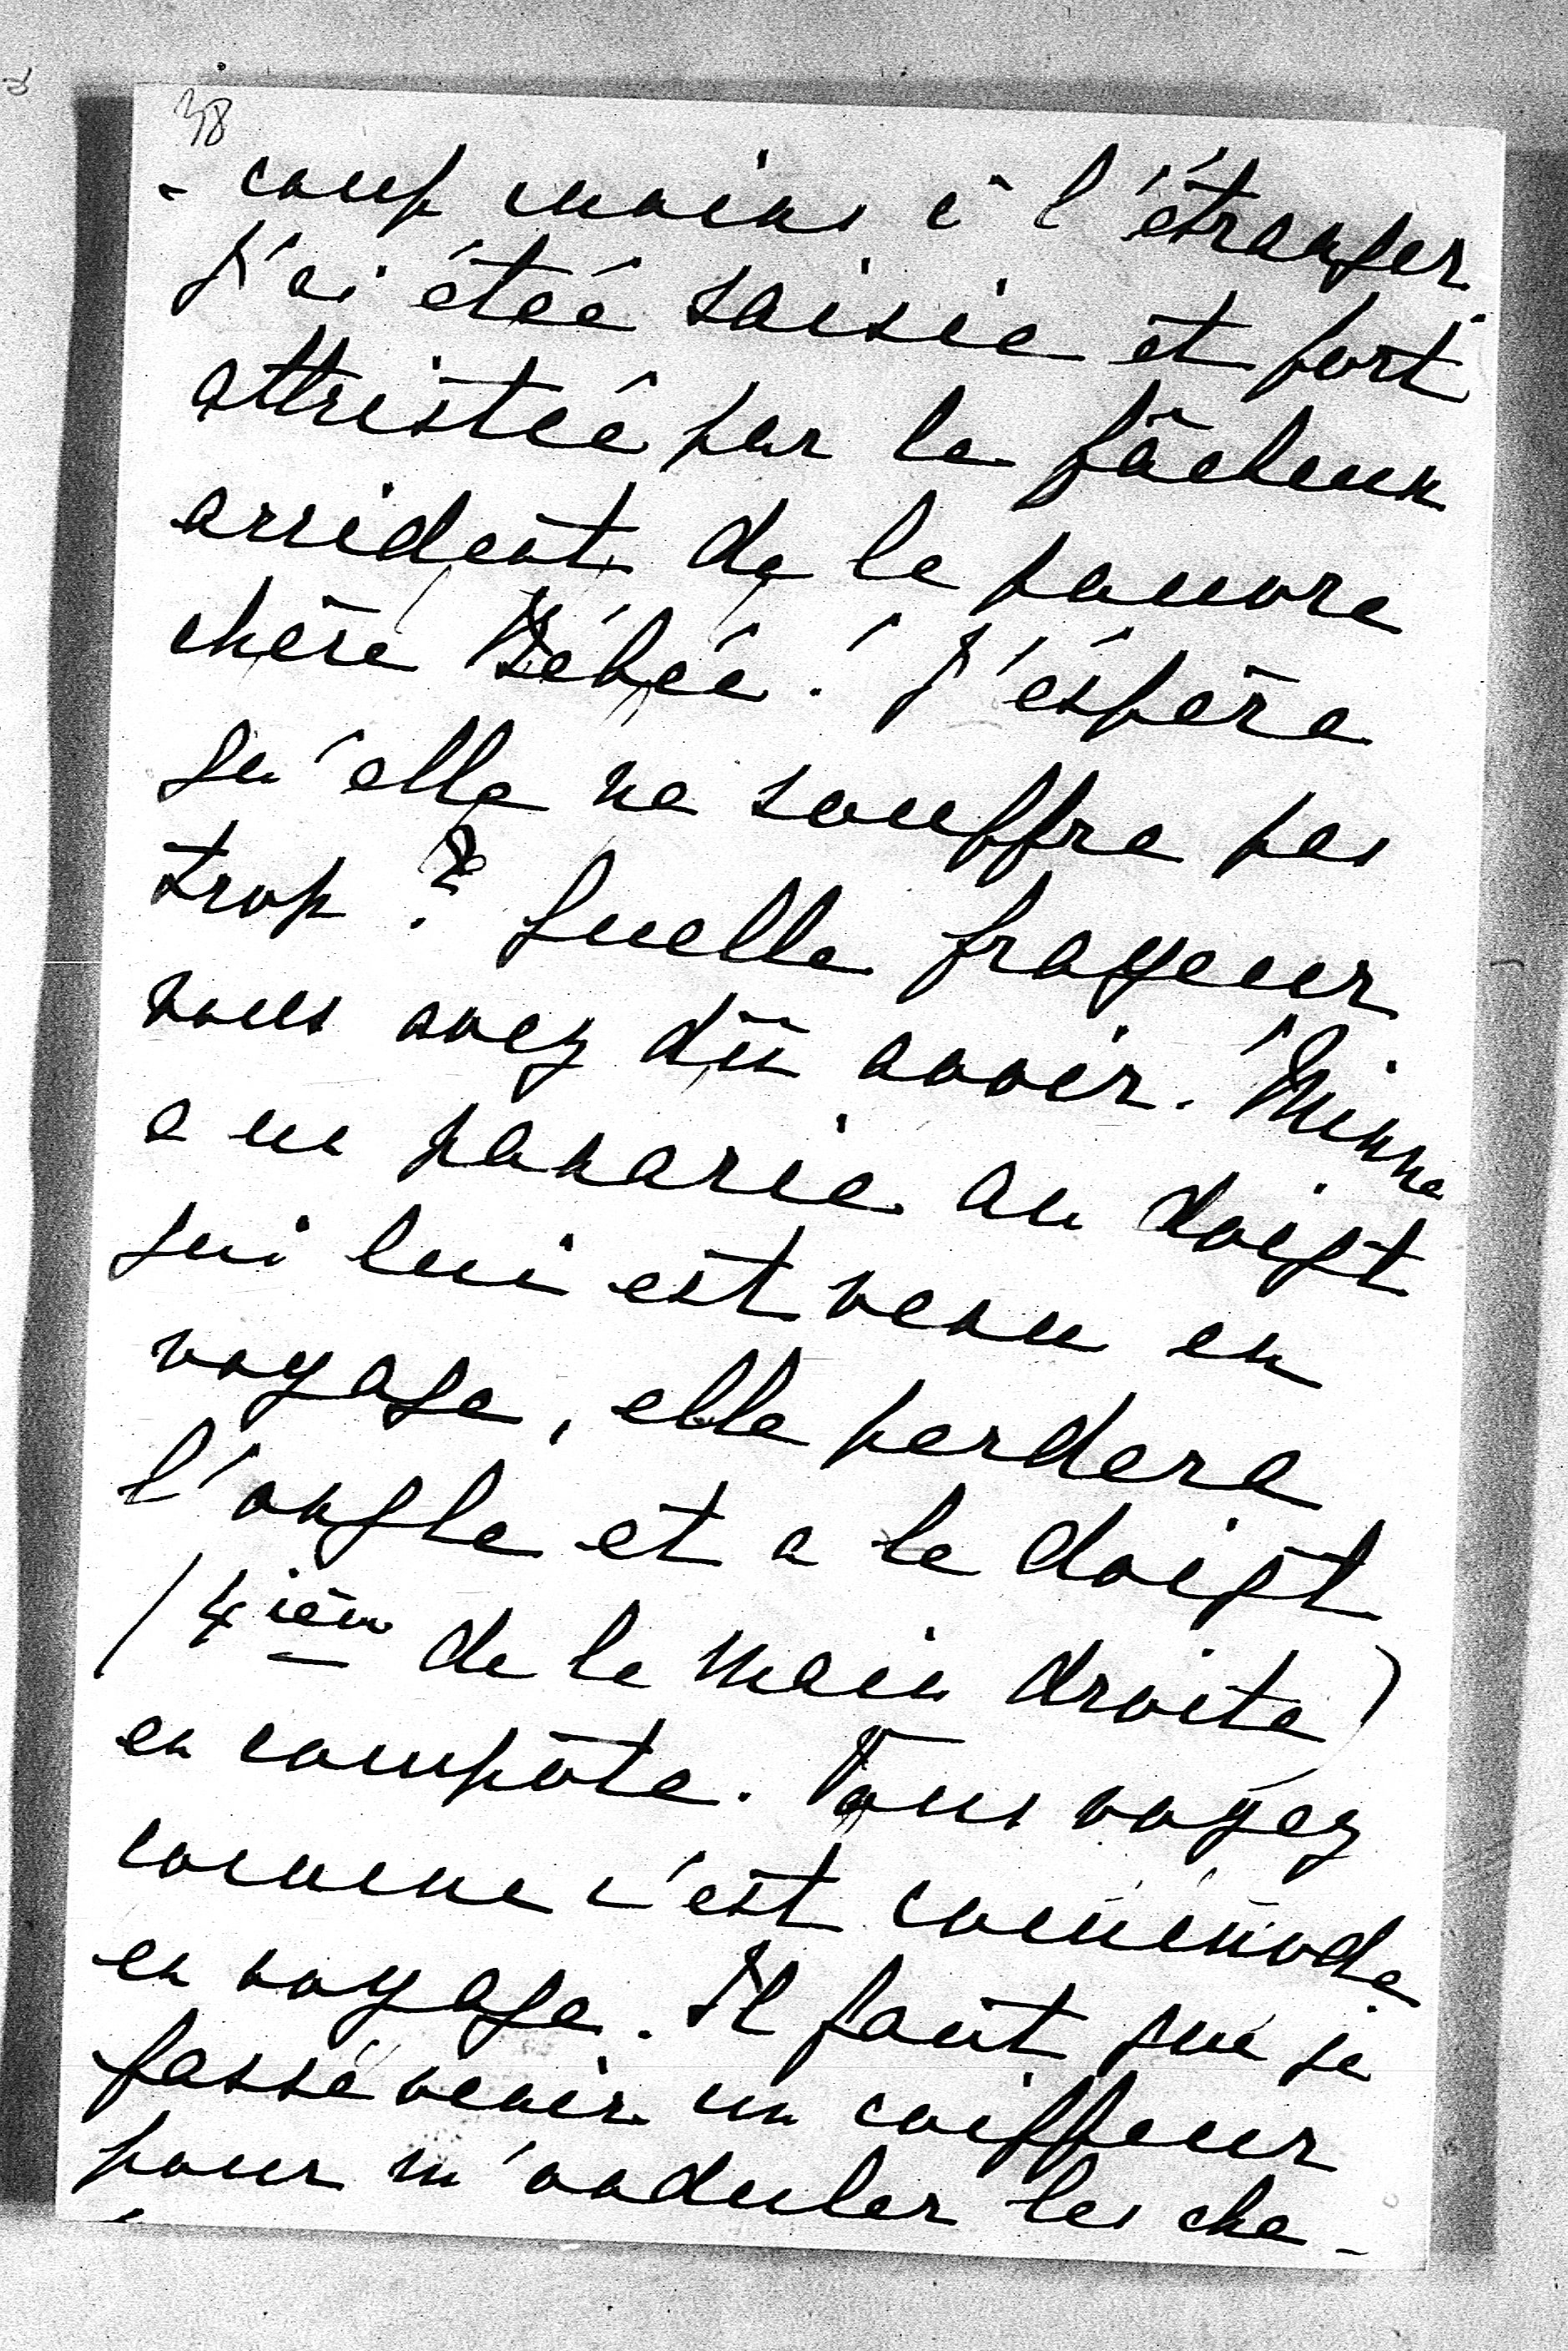 38
- coup moins à l'étranger.
J'ai étée saisie et fort
attristée par le fâcheux
accident de la pauvre
chère Bébée! J'éspère
qu'elle ne souffre pas
trop? Quelle frayeur
vous avez dû avoir. Minna
a un panarie au doigt
qui lui est venu en
voyage, elle perdera
l'ongle et a le doigt
(4ièm de la main droite)
en compôte. Vous voyez
comme c'est commode
en voyage. Il faut que je
fasse venir un coiffeur
pour m'onduler les che-